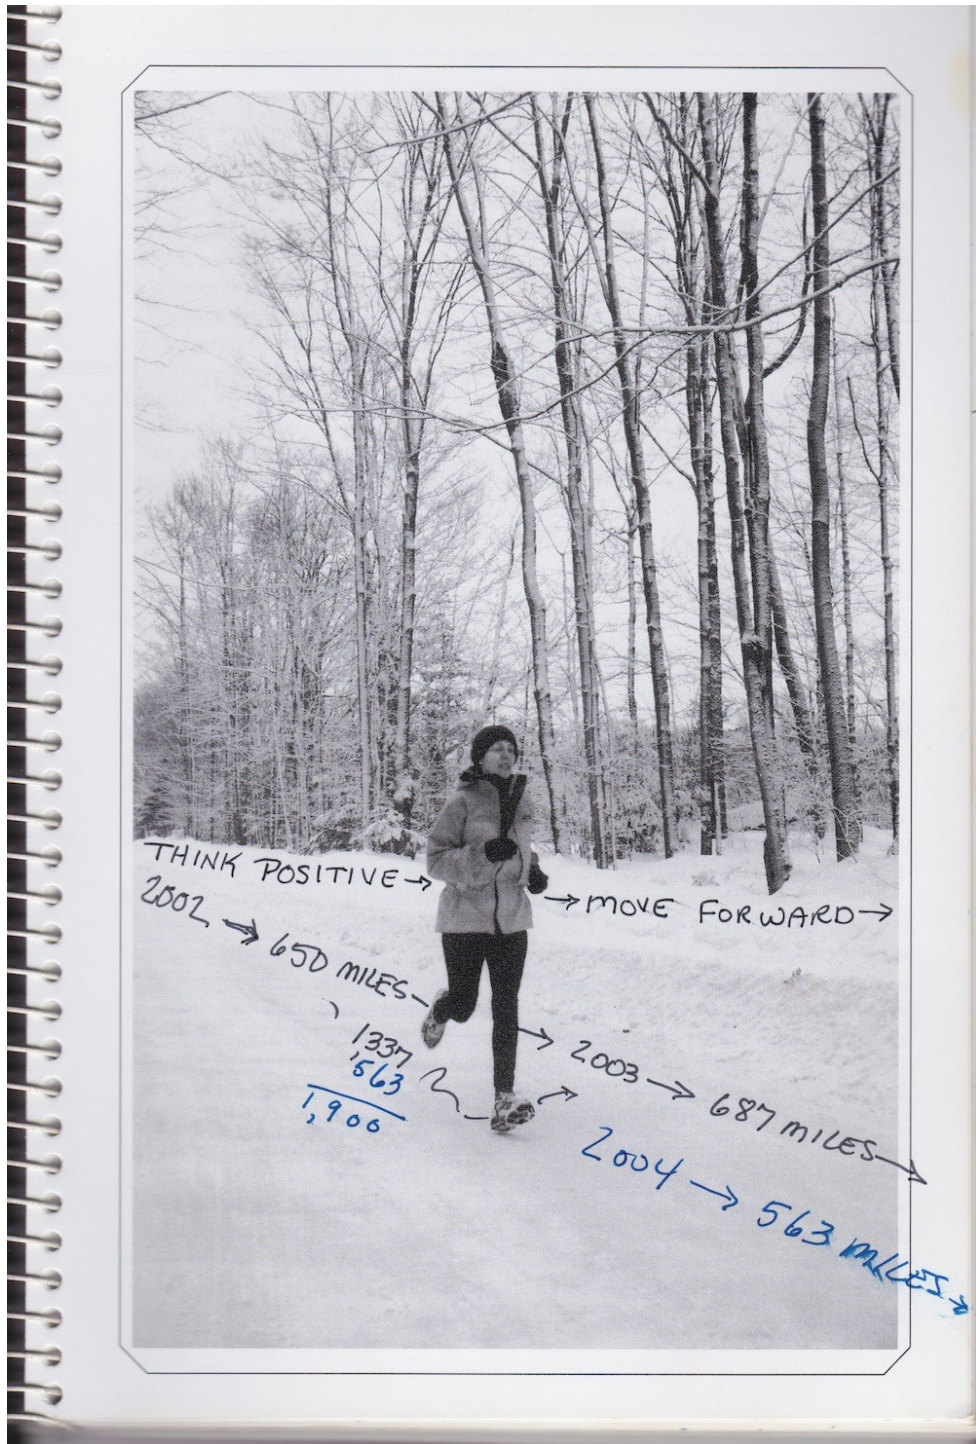 THINK POSITIVE → → MOVE FORWARD →
2002 → 650 MILES → 2003 → 687 MILES →
1337
563
1,900
2004 → 563 MILES →